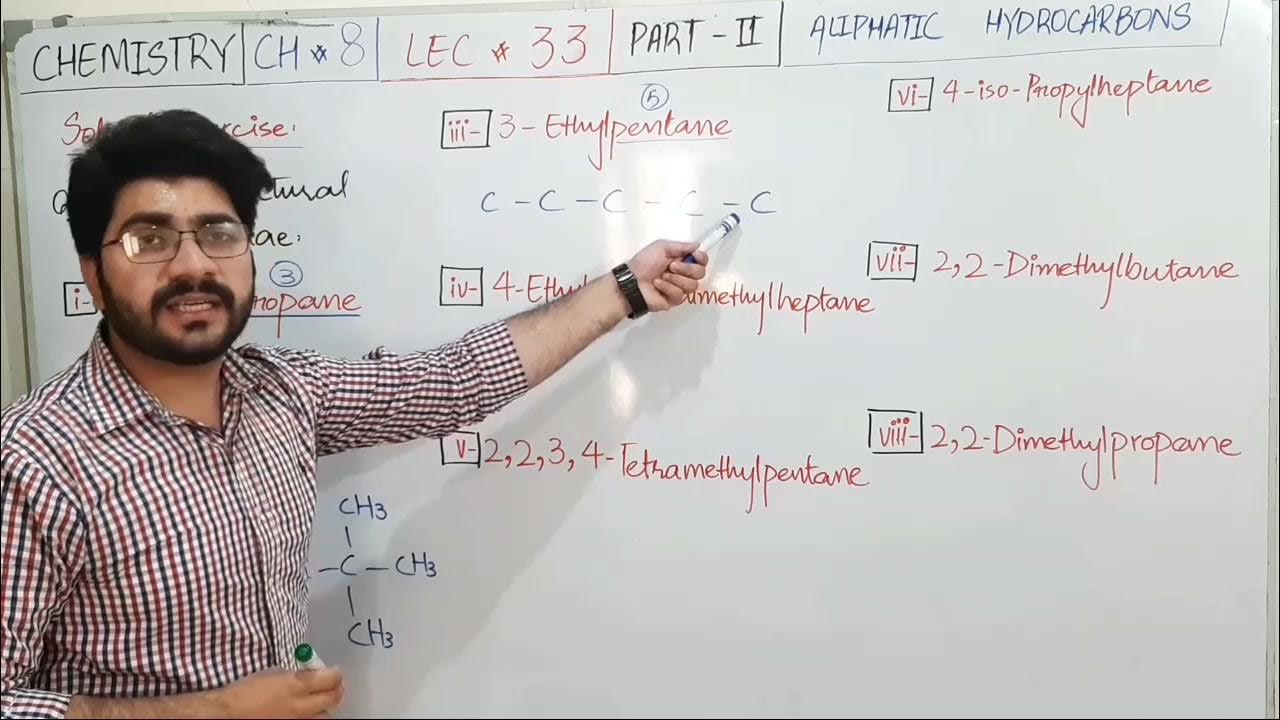 CHEMISTRY CH * 8 LEC * 33 PART-II ALIPHATIC HYDROCARBONS
i-
③
iii- 3-Ethylpentane
⑤
C - C - C - C - C
iv- 4-Ethyl methylheptane
v- 2,2,3,4-Tetramethylpentane
CH3
- C - CH3
CH3
vi- 4-iso-Propylheptane
vii- 2,2-Dimethylbutane
viii- 2,2-Dimethylpropane